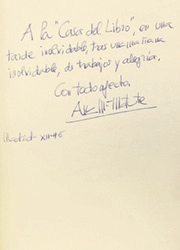 A la "Casa del Libro", en una
tarde inolvidable, tras una mañana
inolvidable, de trabajos y alegrías.
Con todo afecto.
Ana Mª Matute
Madrid